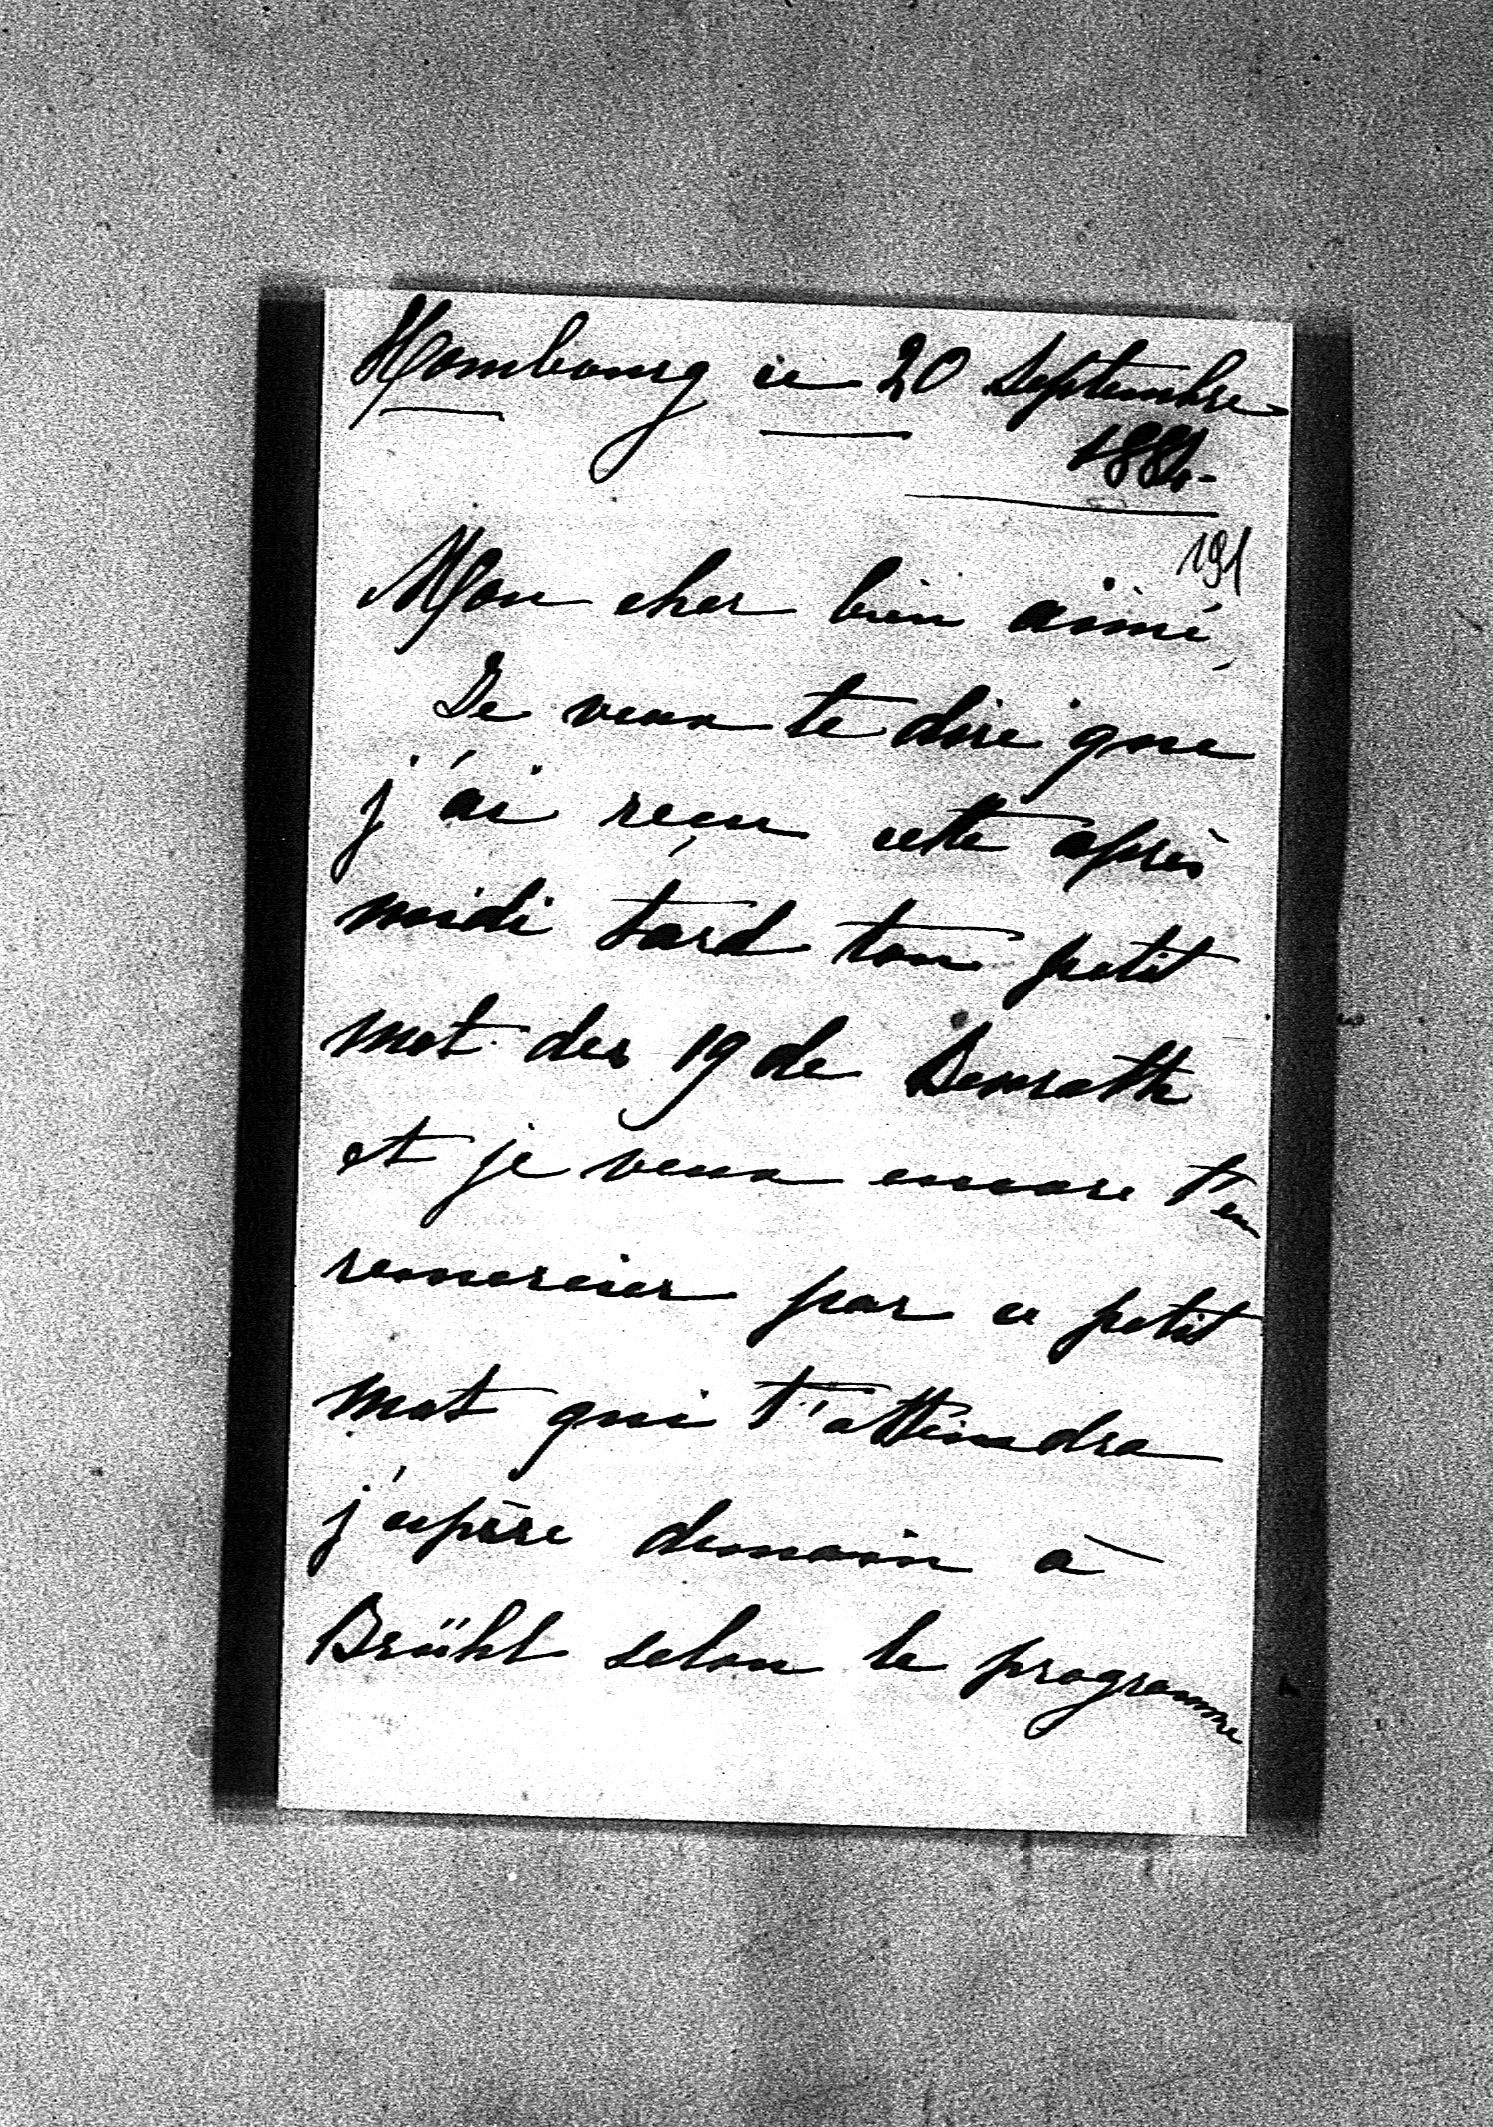 Hombourg ce 20 Septembre
1884.
191
Mon cher bien aimé,
Je veux te dire que
j'ai reçu cette après
midi tard ton petit
mot des 19 de Benrath
et je veux encore t'en
remercier par ce petit
mot qui t'atteindra
j'espère demain à
Brühl selon le programme